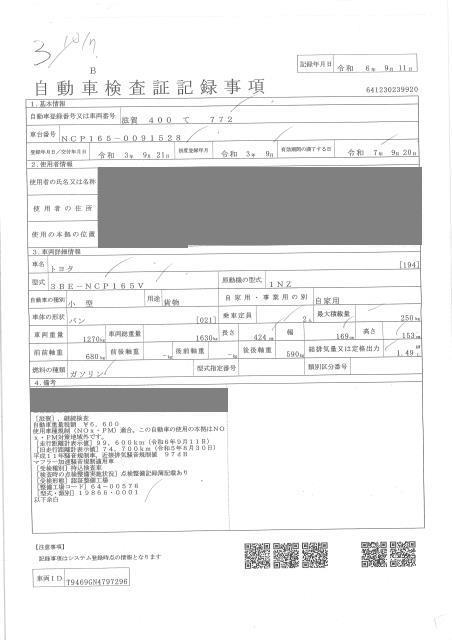 3/10/7
B
記録年月日 令和 6年 9月 11日
自動車検査証記録事項
641230239920
1.基本情報
自動車登録番号又は車両番号 滋賀 400 て 772
車台番号 NCP165-0091528
登録年月日/交付年月日 令和 3年 9月 21日 初度登録年月 令和 3年 9月 有効期間の満了する日 令和 7年 9月 20日
2.使用者情報
使用者の氏名又は名称
使用者の住所
使用の本拠の位置
3.車両詳細情報
車名 トヨタ [194]
型式 3BE-NCP165V 原動機の型式 1NZ
自動車の種別 小型 用途 貨物 自家用・事業用の別 自家用
車体の形状 バン [021] 乗車定員 2人 最大積載量 250kg
車両重量 1270kg 車両総重量 1630kg 長さ 424cm 幅 169cm 高さ 153cm
前前軸重 680kg 前後軸重 -kg 後前軸重 -kg 後後軸重 590kg 総排気量又は定格出力 1.49L
燃料の種類 ガソリン 型式指定番号 類別区分番号
4.備考
[滋賀],継続検査
自動車重量税額 ¥6,600
使用車種規制(NOx・PM)適合,この自動車の使用の本拠はNO
x・PM対策地域外です。
[走行距離計表示値]99,600km(令和6年9月11日)
[旧走行距離計表示値]74,700km(令和5年8月30日)
平成11年騒音規制車,近接排気騒音値 97dB
マフラー加速騒音規制適用車
[受検種別]持込検査車
[検査時の点検整備実施状況]点検整備記録簿記載あり
[受検形態]認証整備工場
[整備工場コード]64-00576
[型式・類別]19866-0001
以下余白
[注意事項]
記録事項はシステム登録時点の情報となります
車両ID T9469GN4797296